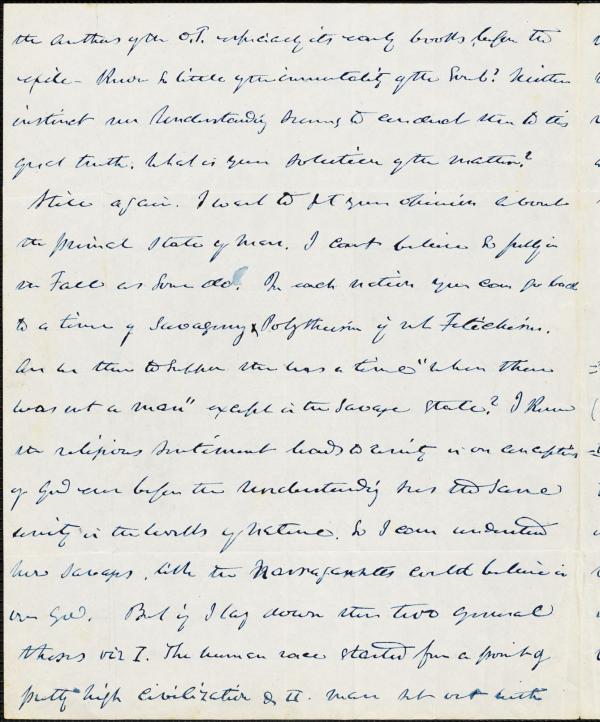 the authors of the O.T. especially its early books, before the
exile - knew so little of the immortality of the Soul? Neither
instinct nor Understanding seems to conduct them to this
great truth. What is your solution of the matter?
Still again. I want to get your opinion about
the primal state of man. I can't believe so fully in
the Fall as some do. In each nation you can go back
to a time of Savagery & Polytheism if not Fetichism.
Are we then to suppose there was a time "when there
was not a man" except in the Savage state? I know
the religious sentiment leads to unity in our conceptions
of God even before the Understanding sees the same
unity in the works of Nature. So I can understand
how savages, like the Narragansetts could believe in
one God. But if I lay down these two general
theses viz I. The human race started from a point of
pretty high civilization & II. man set out with